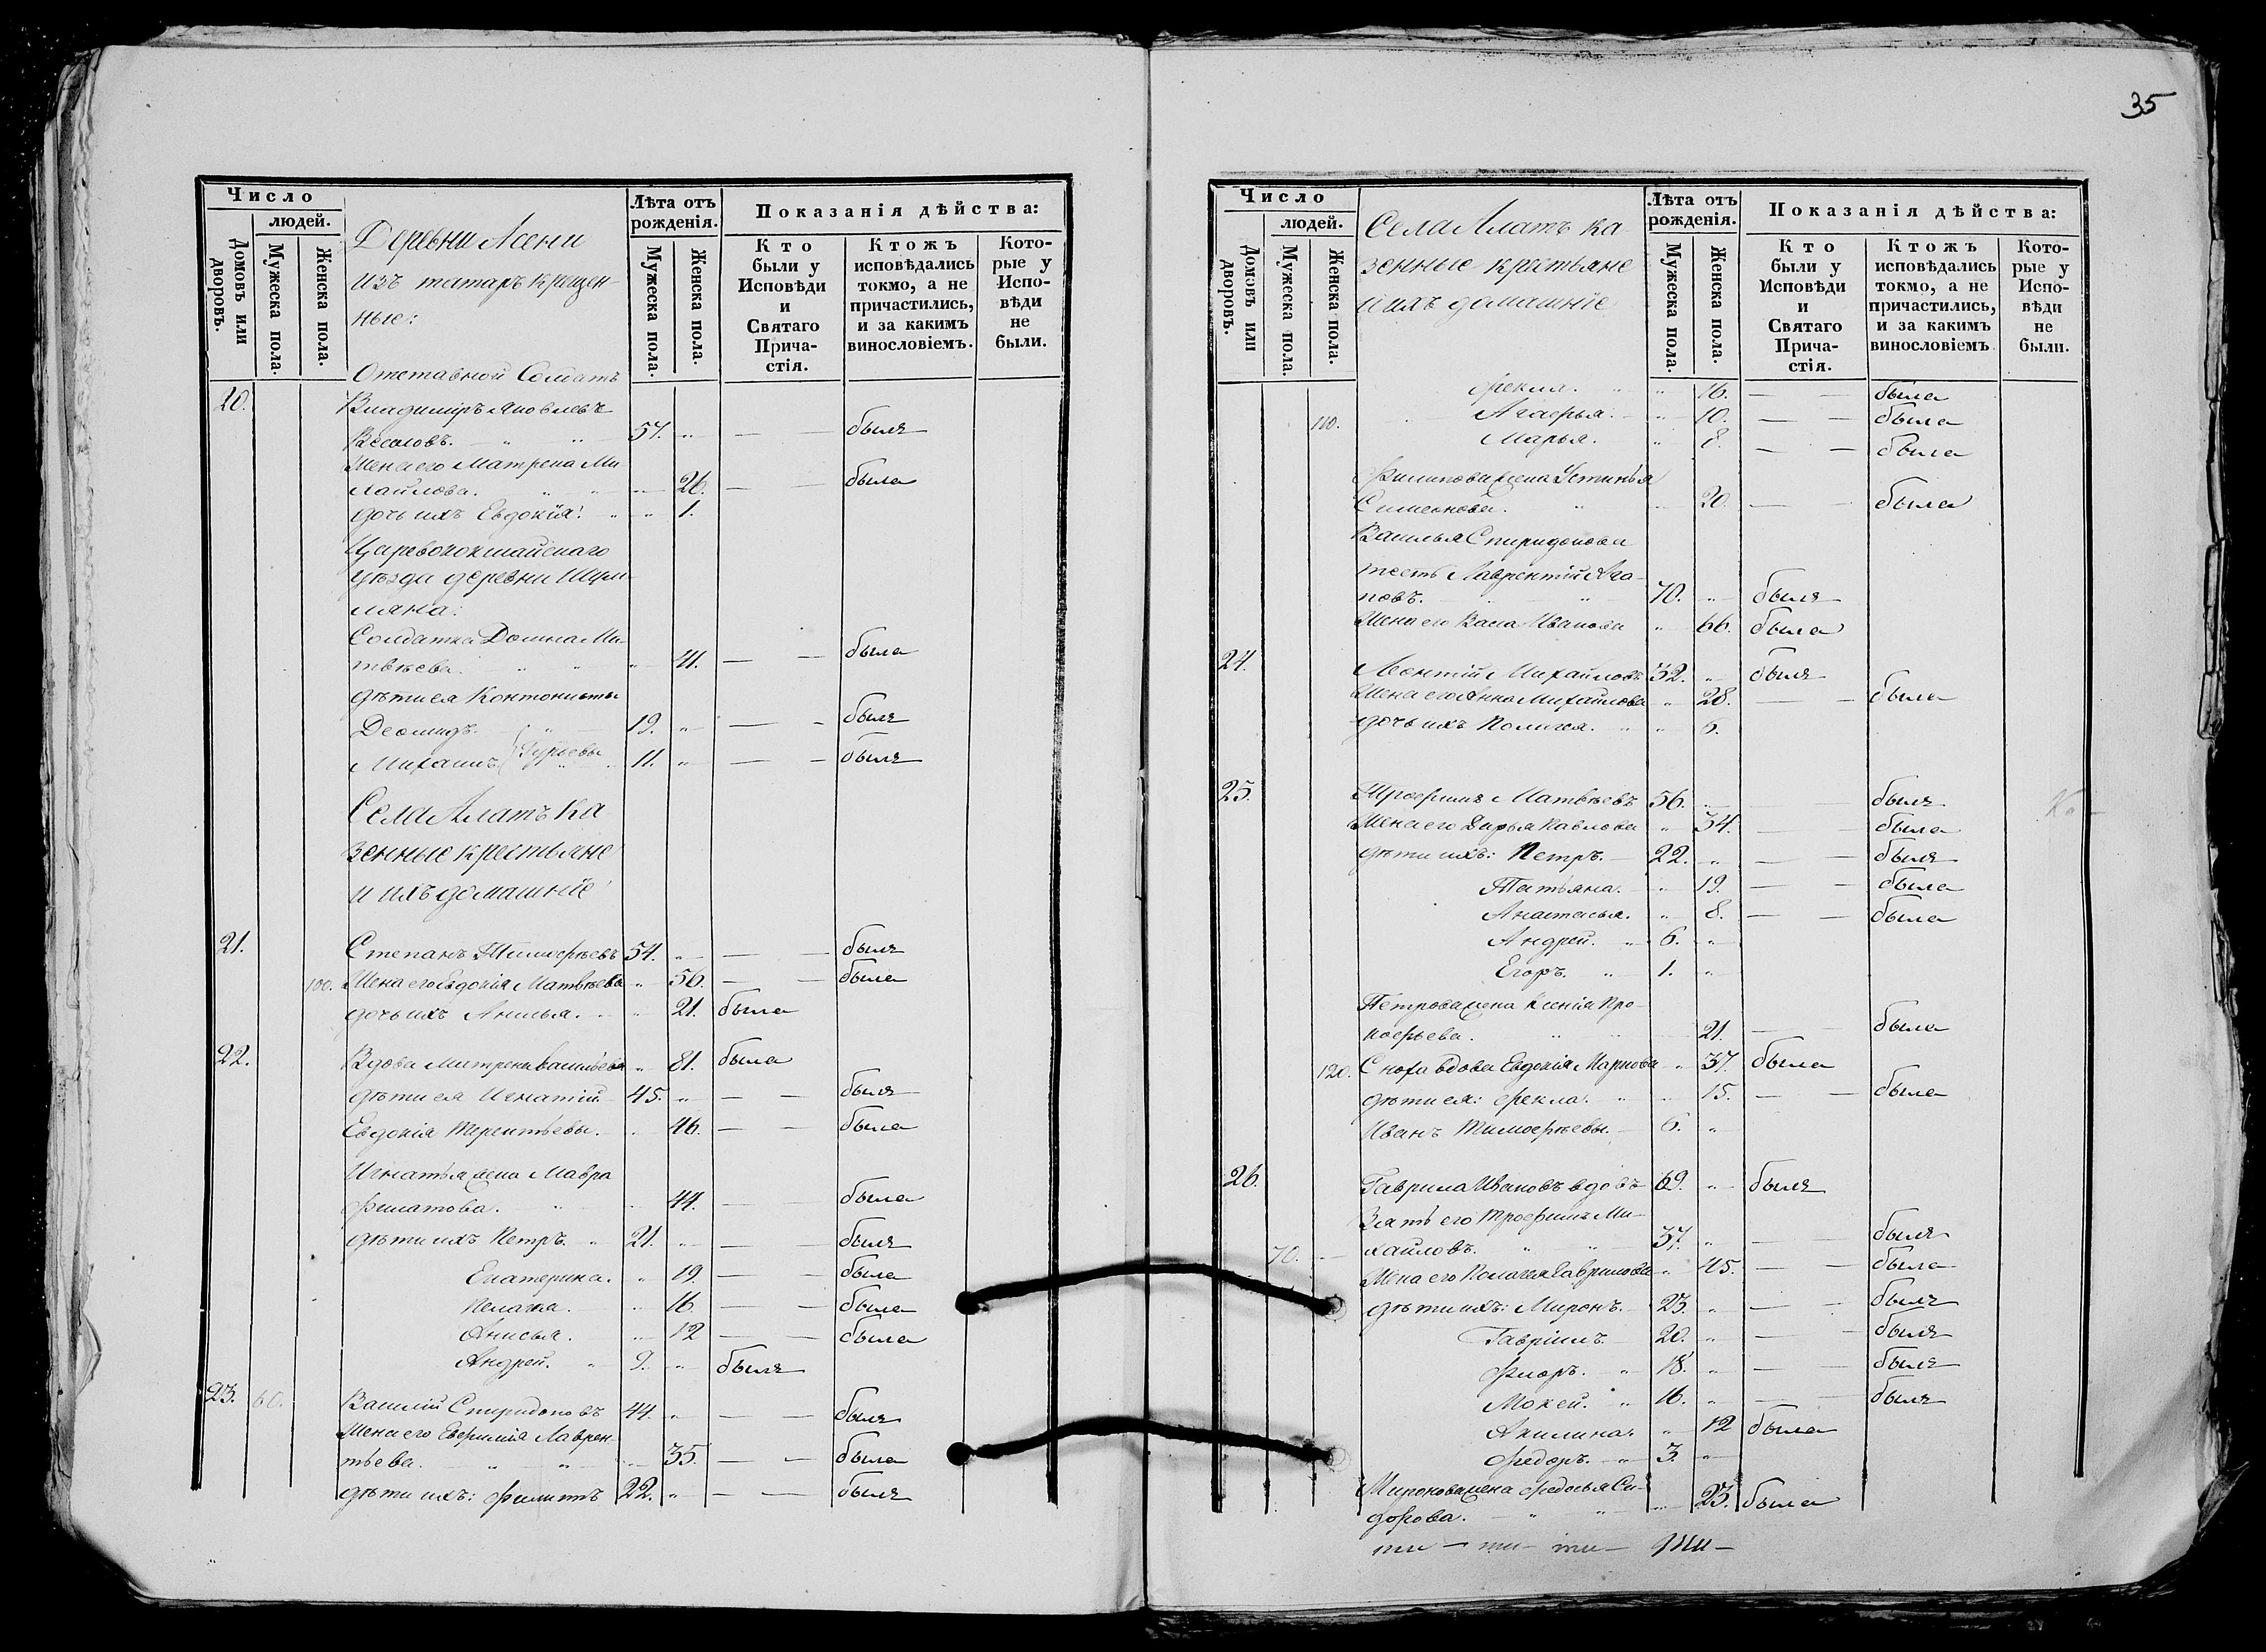 35
Число
людей.
Домовъ или дворовъ.
Мужеска пола.
Женска пола.
Деревни Ясени
изъ татаръ крещен-
ные:
Лѣта отъ рожденія.
Мужеска пола.
Женска пола.
Показанія дѣйства:
Кто были у Исповѣди и Святаго Прича-стія.
Ктожъ исповѣдались токмо, а не причастились, и за какимъ винословіемъ.
Кото-рые у Испо-вѣди не были.
Отставной Солдатъ
20. Владиміръ Яковлевъ
57. — — былъ
Жена его Матрена Ми-
хайлова. 26. — — была
дочь ихъ Евдокія. 1.
Царевококшайскаго
уѣзда деревни
Солдатка Домна Ма-
твѣева. 41. — — была
дѣти ея Кантонисты
Деомидъ. 19. — — былъ
Михаилъ Гурьевы 11. — — былъ
Села Алатъ ка
зенные крестьяне
и ихъ домашніе
21. Степанъ Тимофѣевъ 54. — — былъ
100. Жена его Евдокія Матвѣева 56. — — была
дочь ихъ Анисья. 21. была
22. Вдова Матрена Васильева 81. была
дѣти ея Игнатій 45. — — былъ
Евдокія Терентьевы. 46. — — была
Игнатья жена Мавра
Филатова. 44. — была
дѣти ихъ Петръ. 21. — — былъ
Екатерина. 19. — — была
Пелагея. 16. — — была
Анисья. 12 — — была
Андрей. 9. былъ
23. 60. Василій Спиридоновъ 44. — — былъ
Жена его Евфимія Лаврен-
тьева. 35. — — была
дѣти ихъ: Филиппъ 22. — — былъ
Число
людей.
Домовъ или дворовъ.
Мужеска пола.
Женска пола.
Села Алатъ ка
зенные крестьяне
и ихъ домашніе
Лѣта отъ рожденія.
Мужеска пола.
Женска пола.
Показанія дѣйства:
Кто были у Исповѣди и Святаго Прича-стія.
Ктожъ исповѣдались токмо, а не причастились, и за какимъ винословіемъ
Кото-рые у Испо-вѣди не были.
Фекла. 16. — — была
110. Агафья. 10. — — была
Марья. 8. — — была
Филипова жена Устинья
Симеонова. 20. — — была
Василья Спиридонова
тесть Лаврентій Ага-
повъ. 70. былъ
Жена его Васса Иванова 66. была
24. Леонтій Михайловъ 32. былъ
Жена его Анна Михайлова 28. — — была
дочь ихъ Пелагея. 5.
25. Трофимъ Матвѣевъ 56. — — былъ
Жена его Дарья Павлова 54. — — была
дѣти ихъ: Петръ. 22. — — былъ
Татьяна. 19. — — была
Анастасья. 8. — — была
Андрей. 6.
Егоръ. 1.
Петрова жена Ксенія Про-
кофьева. 21. — была
120. Сноха вдова Евдокія Маркова 37. была
дѣти ея: Фекла. 15. — — была
Иванъ Тимофѣевы. 6.
26. Гаврила Ивановъ вдовъ 69. былъ
Зять его Трофимъ Ми-
70. хайловъ. 37. — — былъ
Жена его Пелагея Гаврилова 45. — — была
дѣти ихъ: Миронъ. 23. — — былъ
Гавріилъ. 20. — — былъ
Флоръ. 18. — — былъ
Мокей. 16. — — былъ
Акилина. 12 была
Федоръ. 3.
Миронова жена Федосья Си-
дорова. 23. была